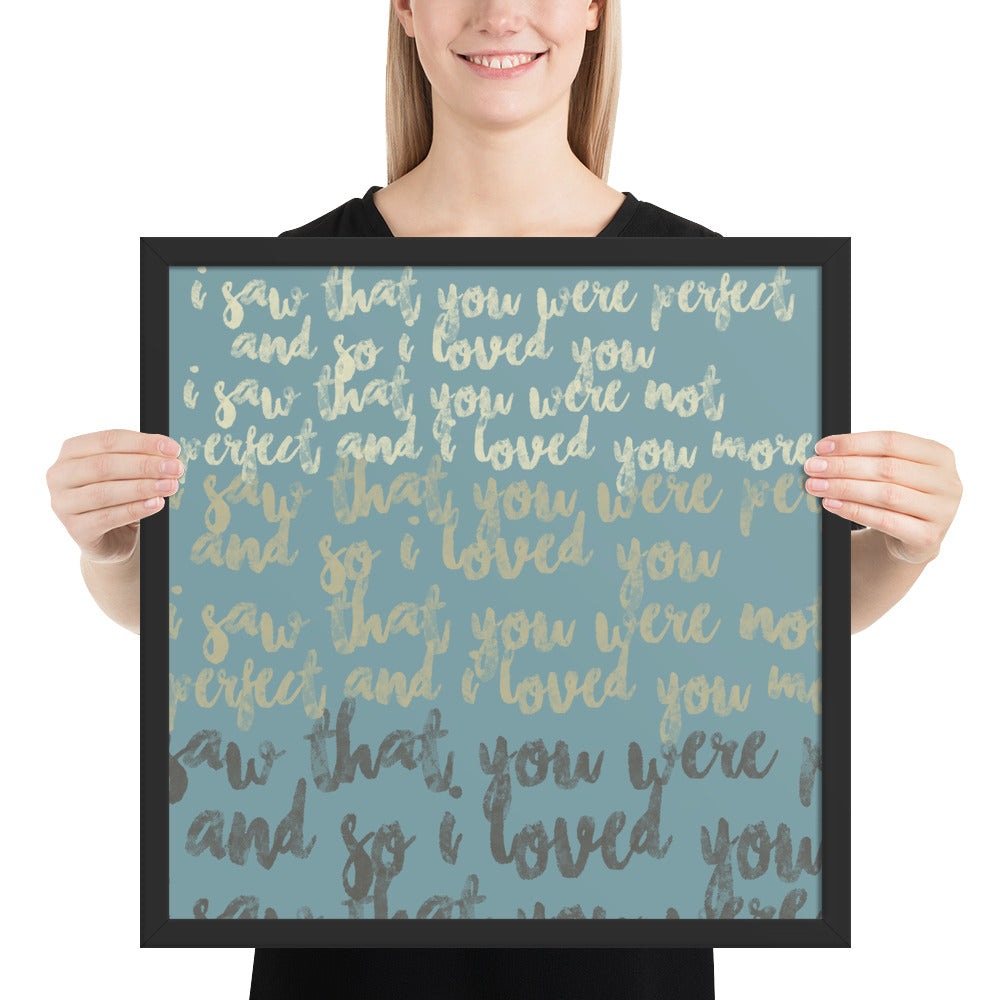 i saw that you were perfect
and so i loved you
i saw that you were not
perfect and i loved you more
i saw that you were per
and so i loved you
i saw that you were not
perfect and i loved you mo
saw that you were p
and so i loved you
saw that you were